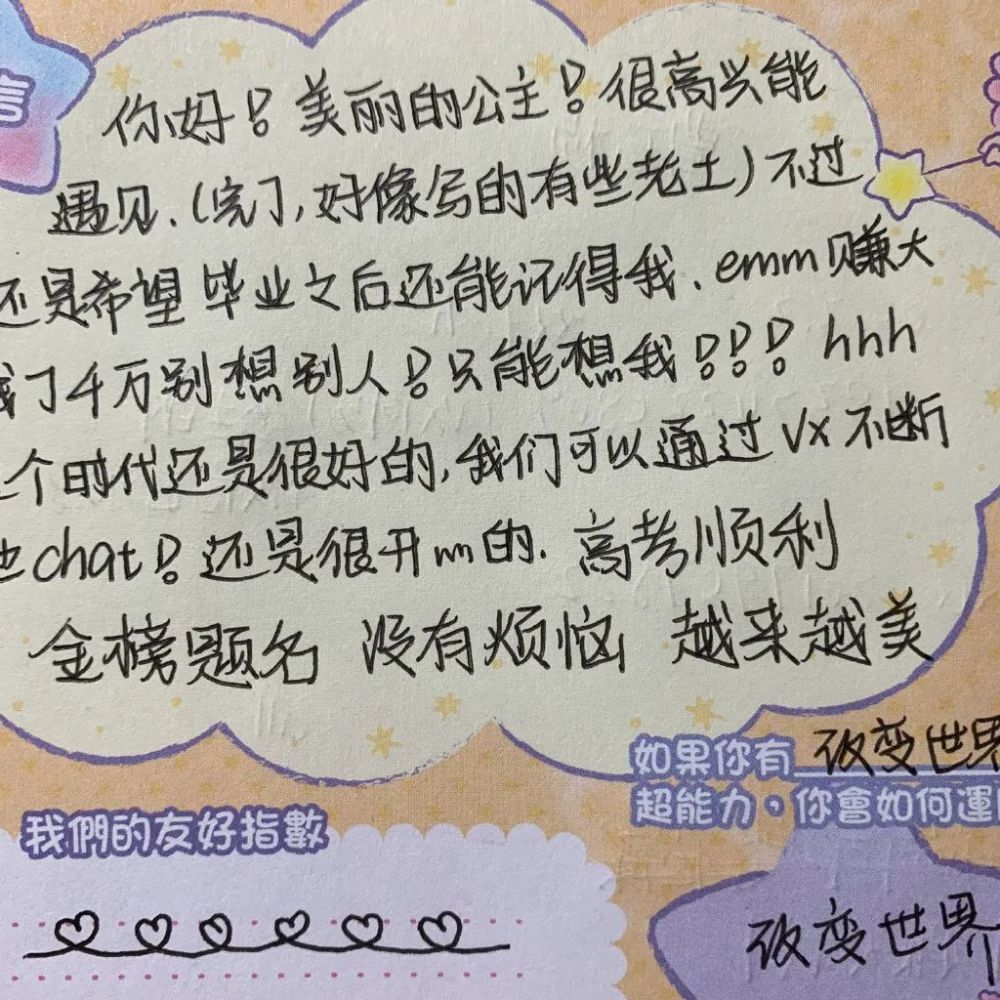 言
你好！美丽的公主！很高兴能
遇见.(完了,好像写的有些老土)不过
还是希望毕业之后还能记得我.emm赚大
了千万别想别人！只能想我！！！hhh
个时代还是很好的,我们可以通过Vx不断
chat！还是很开nn的.高考顺利
金榜题名 没有烦恼 越来越美
如果你有 改变世界
超能力。你會如何運
我們的友好指數
改变世界